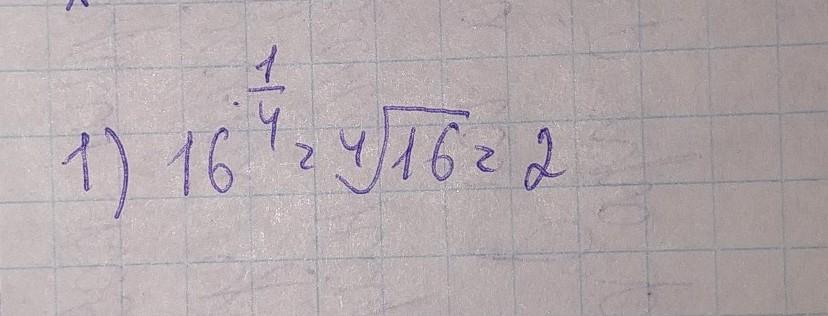 1) 16^{\frac{1}{4}} = \sqrt[4]{16} = 2